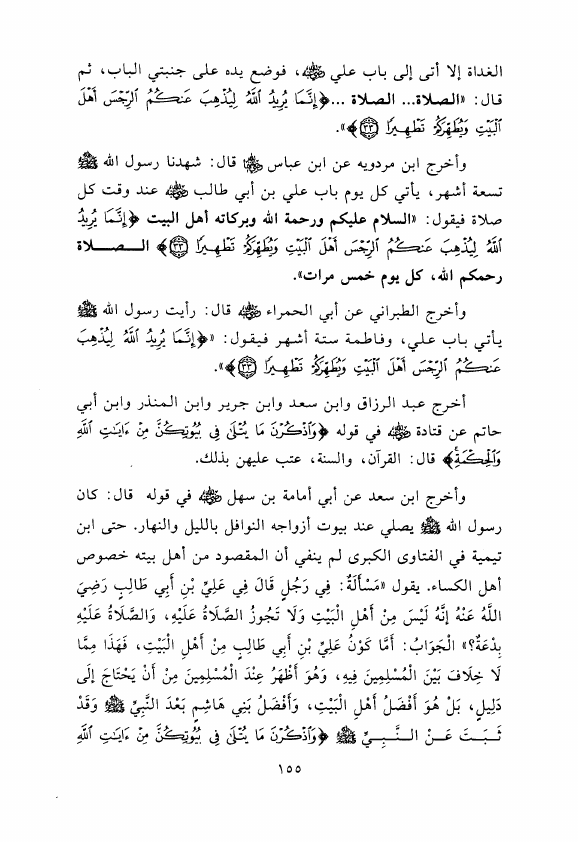 الغداة إلا أتى إلى باب علي رضي الله عنه، فوضع يده على جنبتي الباب، ثم
قال: «الصلاة... الصلاة ...﴿إِنَّمَا يُرِيدُ ٱللَّهُ لِيُذْهِبَ عَنكُمُ ٱلرِّجْسَ أَهْلَ
ٱلْبَيْتِ وَيُطَهِّرَكُمْ تَطْهِيرًا ٣٣﴾».
وأخرج ابن مردويه عن ابن عباس رضي الله عنهما قال: شهدنا رسول الله ﷺ
تسعة أشهر، يأتي كل يوم باب علي بن أبي طالب رضي الله عنه عند وقت كل
صلاة فيقول: «السلام عليكم ورحمة الله وبركاته أهل البيت ﴿إِنَّمَا يُرِيدُ
ٱللَّهُ لِيُذْهِبَ عَنكُمُ ٱلرِّجْسَ أَهْلَ ٱلْبَيْتِ وَيُطَهِّرَكُمْ تَطْهِيرًا ٣٣﴾ الــصــلاة
رحمكم الله، كل يوم خمس مرات».
وأخرج الطبراني عن أبي الحمراء رضي الله عنه قال: رأيت رسول الله ﷺ
يأتي باب علي، وفاطمة ستة أشهر فيقول: «﴿إِنَّمَا يُرِيدُ ٱللَّهُ لِيُذْهِبَ
عَنكُمُ ٱلرِّجْسَ أَهْلَ ٱلْبَيْتِ وَيُطَهِّرَكُمْ تَطْهِيرًا ٣٣﴾».
أخرج عبد الرزاق وابن سعد وابن جرير وابن المنذر وابن أبي
حاتم عن قتادة رضي الله عنه في قوله ﴿وَٱذْكُرْنَ مَا يُتْلَىٰ فِى بُيُوتِكُنَّ مِنْ ءَايَٰتِ ٱللَّهِ
وَٱلْحِكْمَةِ﴾ قال: القرآن، والسنة، عتب عليهن بذلك.
وأخرج ابن سعد عن أبي أمامة بن سهل رضي الله عنه في قوله قال: كان
رسول الله ﷺ يصلي عند بيوت أزواجه النوافل بالليل والنهار. حتى ابن
تيمية في الفتاوى الكبرى لم ينفي أن المقصود من أهل بيته خصوص
أهل الكساء. يقول «مَسْأَلَةٌ: فِي رَجُلٍ قَالَ فِي عَلِيِّ بْنِ أَبِي طَالِبٍ رَضِيَ
اللَّهُ عَنْهُ إنَّهُ لَيْسَ مِنْ أَهْلِ الْبَيْتِ وَلَا تَجُوزُ الصَّلَاةُ عَلَيْهِ، وَالصَّلَاةُ عَلَيْهِ
بِدْعَةٌ؟» الْجَوَابُ: أَمَّا كَوْنُ عَلِيِّ بْنِ أَبِي طَالِبٍ مِنْ أَهْلِ الْبَيْتِ، فَهَذَا مِمَّا
لَا خِلَافَ بَيْنَ الْمُسْلِمِينَ فِيهِ، وَهُوَ أَظْهَرُ عِنْدَ الْمُسْلِمِينَ مِنْ أَنْ يَحْتَاجَ إلَى
دَلِيلٍ، بَلْ هُوَ أَفْضَلُ أَهْلِ الْبَيْتِ، وَأَفْضَلُ بَنِي هَاشِمٍ بَعْدَ النَّبِيِّ ﷺ وَقَدْ
ثَــبَــتَ عَــنْ الــنَّــبِــيِّ ﷺ ﴿وَٱذْكُرْنَ مَا يُتْلَىٰ فِى بُيُوتِكُنَّ مِنْ ءَايَٰتِ ٱللَّهِ
١٥٥